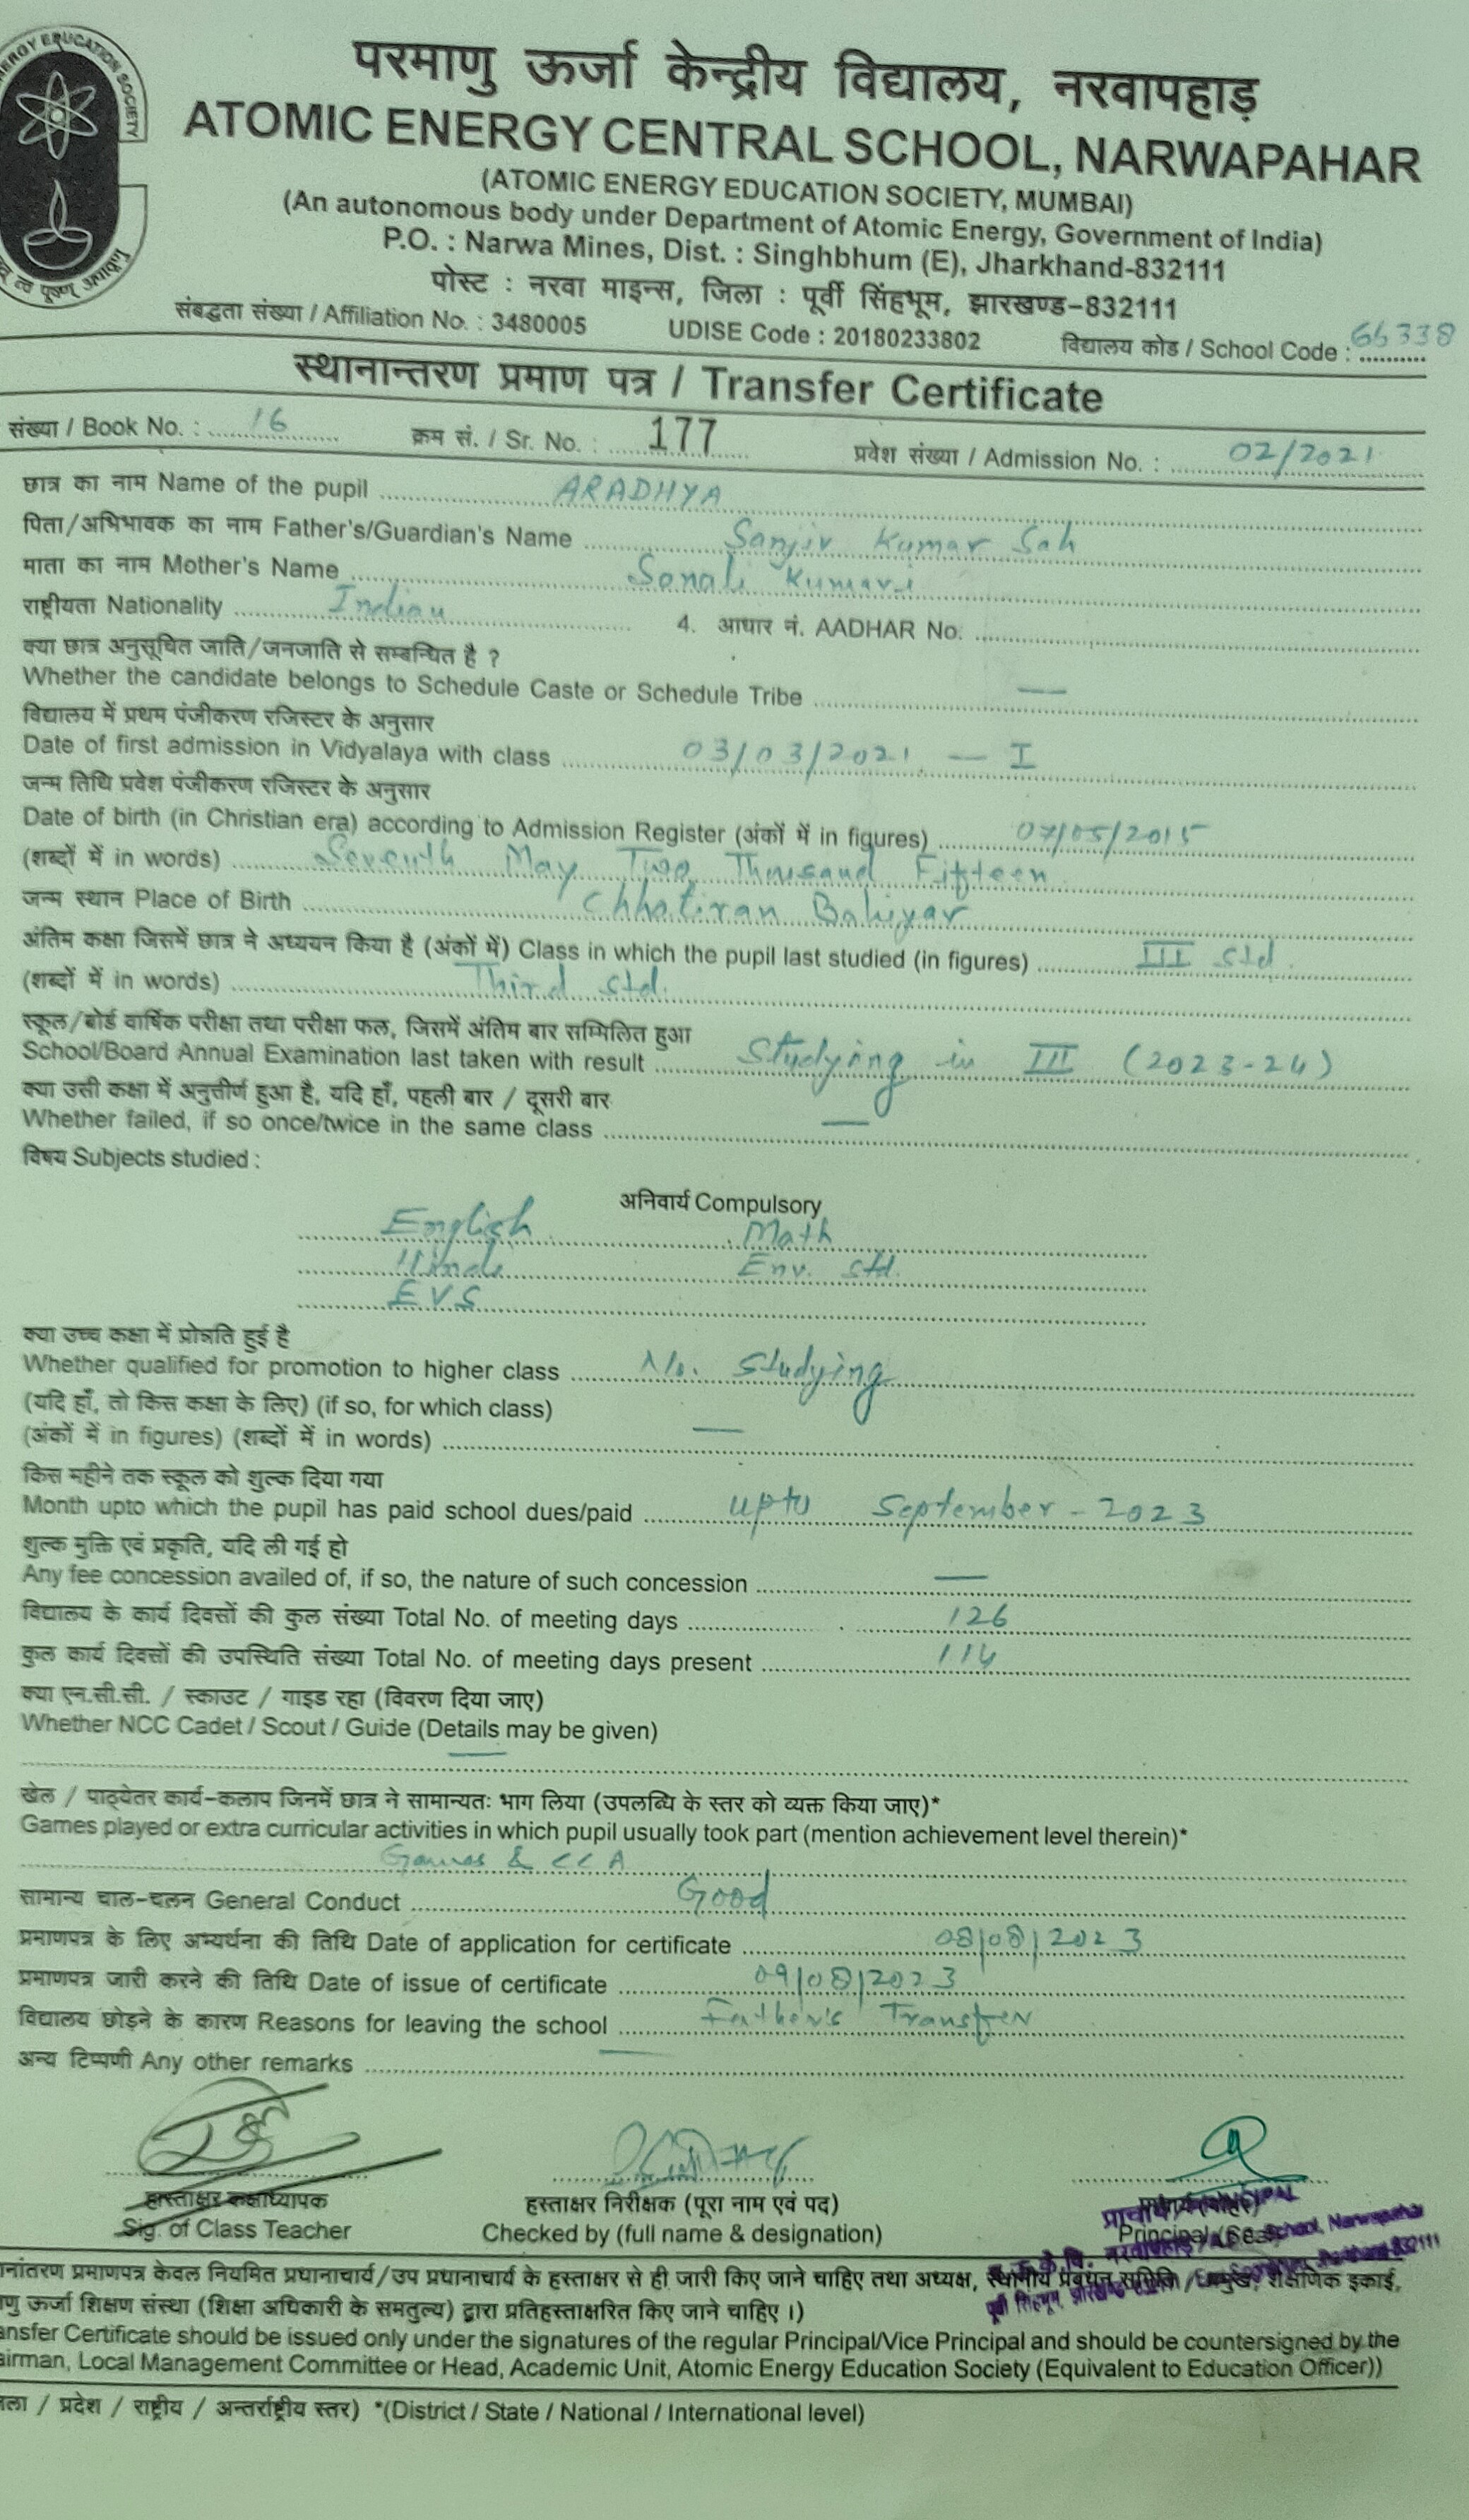 ERGY EDUCATION SOCIETY
परमाणु ऊर्जा केन्द्रीय विद्यालय, नरवापहाड़
ATOMIC ENERGY CENTRAL SCHOOL, NARWAPAHAR
(ATOMIC ENERGY EDUCATION SOCIETY, MUMBAI)
(An autonomous body under Department of Atomic Energy, Government of India)
P.O. : Narwa Mines, Dist. : Singhbhum (E), Jharkhand-832111
पोस्ट : नरवा माइन्स, जिला : पूर्वी सिंहभूम, झारखण्ड-832111
संबद्धता संख्या / Affiliation No. : 3480005 UDISE Code : 20180233802 विद्यालय कोड / School Code : 66338
स्थानान्तरण प्रमाण पत्र / Transfer Certificate
संख्या / Book No. : 16 क्रम सं. / Sr. No. : 177 प्रवेश संख्या / Admission No. : 02/2021
छात्र का नाम Name of the pupil ARADHYA
पिता/अभिभावक का नाम Father's/Guardian's Name Sanjiv Kumar Sah
माता का नाम Mother's Name Sonali Kumari
राष्ट्रीयता Nationality Indian 4. आधार नं. AADHAR No.
क्या छात्र अनुसूचित जाति/जनजाति से सम्बन्धित है ?
Whether the candidate belongs to Schedule Caste or Schedule Tribe —
विद्यालय में प्रथम पंजीकरण रजिस्टर के अनुसार
Date of first admission in Vidyalaya with class 03/03/2021 — I
जन्म तिथि प्रवेश पंजीकरण रजिस्टर के अनुसार
Date of birth (in Christian era) according to Admission Register (अंकों में in figures) 07/05/2015
(शब्दों में in words) Seventh May Two Thousand Fifteen
जन्म स्थान Place of Birth Chhatiran Bahiyar
अंतिम कक्षा जिसमें छात्र ने अध्ययन किया है (अंकों में) Class in which the pupil last studied (in figures) III std.
(शब्दों में in words) Third std.
स्कूल/बोर्ड वार्षिक परीक्षा तथा परीक्षा फल, जिसमें अंतिम बार सम्मिलित हुआ
School/Board Annual Examination last taken with result Studying in III (2023-24)
क्या उसी कक्षा में अनुत्तीर्ण हुआ है, यदि हाँ, पहली बार / दूसरी बार
Whether failed, if so once/twice in the same class —
विषय Subjects studied :
अनिवार्य Compulsory
English Math
Hindi Env. std.
EVS
क्या उच्च कक्षा में प्रोन्नति हुई है
Whether qualified for promotion to higher class No. Studying
(यदि हाँ, तो किस कक्षा के लिए) (if so, for which class)
(अंकों में in figures) (शब्दों में in words) —
किस महीने तक स्कूल को शुल्क दिया गया
Month upto which the pupil has paid school dues/paid upto September - 2023
शुल्क मुक्ति एवं प्रकृति, यदि ली गई हो
Any fee concession availed of, if so, the nature of such concession —
विद्यालय के कार्य दिवसों की कुल संख्या Total No. of meeting days 126
कुल कार्य दिवसों की उपस्थिति संख्या Total No. of meeting days present 114
क्या एन.सी.सी. / स्काउट / गाइड रहा (विवरण दिया जाए)
Whether NCC Cadet / Scout / Guide (Details may be given)
—
खेल / पाठ्येतर कार्य-कलाप जिनमें छात्र ने सामान्यतः भाग लिया (उपलब्धि के स्तर को व्यक्त किया जाए)*
Games played or extra curricular activities in which pupil usually took part (mention achievement level therein)*
Games & CCA
सामान्य चाल-चलन General Conduct Good
प्रमाणपत्र के लिए अभ्यर्थना की तिथि Date of application for certificate 08/08/2023
प्रमाणपत्र जारी करने की तिथि Date of issue of certificate 09/08/2023
विद्यालय छोड़ने के कारण Reasons for leaving the school Father's Transfer
अन्य टिप्पणी Any other remarks —
हस्ताक्षर कक्षाध्यापक हस्ताक्षर निरीक्षक (पूरा नाम एवं पद)
Sig. of Class Teacher Checked by (full name & designation) Principal
नांतरण प्रमाणपत्र केवल नियमित प्रधानाचार्य/उप प्रधानाचार्य के हस्ताक्षर से ही जारी किए जाने चाहिए तथा अध्यक्ष, स्थानीय प्रबंधन समिति / प्रमुख, शैक्षणिक इकाई,
णु ऊर्जा शिक्षण संस्था (शिक्षा अधिकारी के समतुल्य) द्वारा प्रतिहस्ताक्षरित किए जाने चाहिए ।)
ansfer Certificate should be issued only under the signatures of the regular Principal/Vice Principal and should be countersigned by the
airman, Local Management Committee or Head, Academic Unit, Atomic Energy Education Society (Equivalent to Education Officer))
ला / प्रदेश / राष्ट्रीय / अन्तर्राष्ट्रीय स्तर) *(District / State / National / International level)